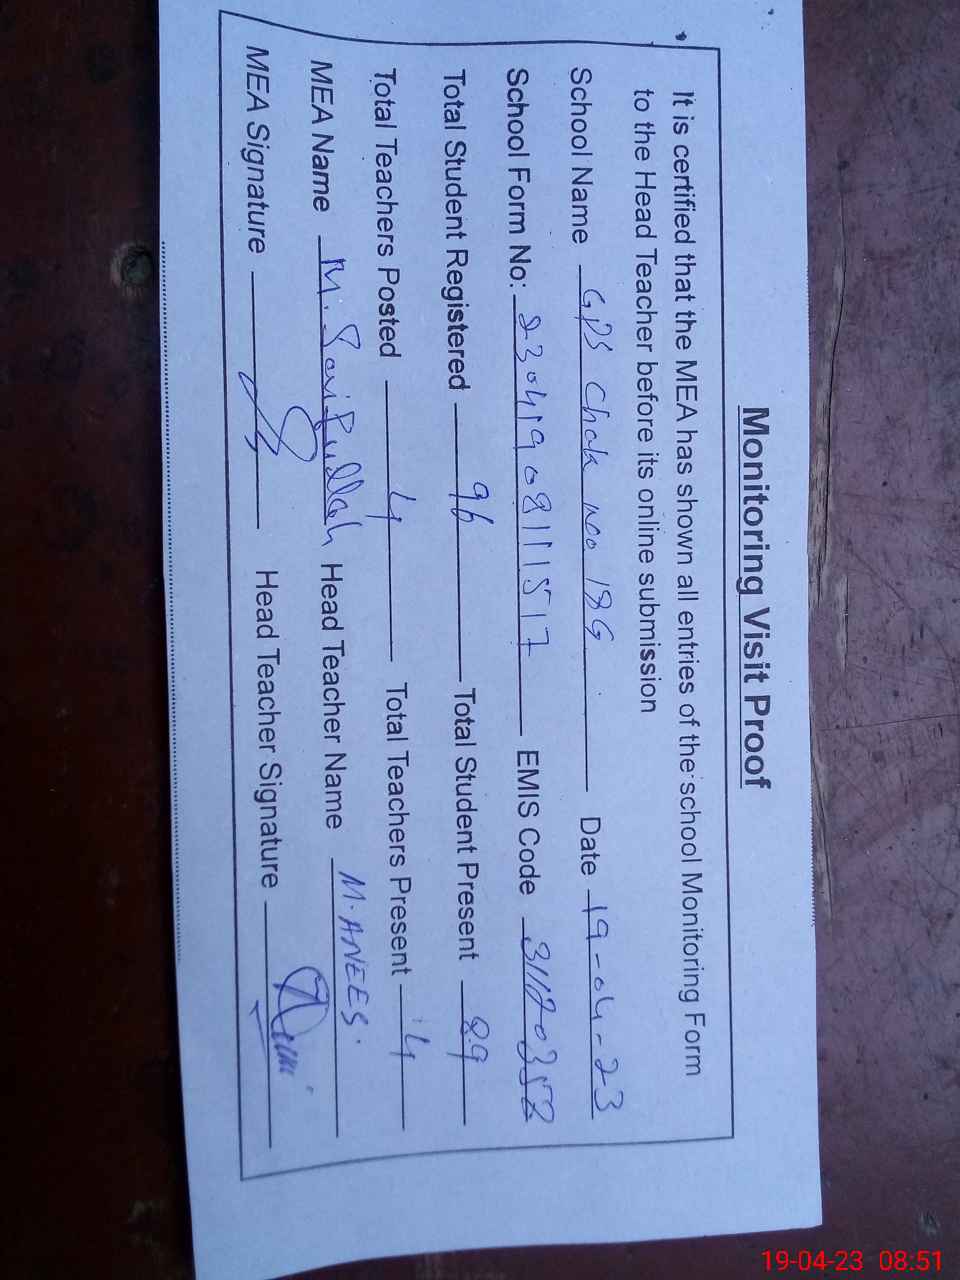 Monitoring Visit Proof
It is certified that the MEA has shown all entries of the school Monitoring Form
to the Head Teacher before its online submission
School Name GPS Chak noo 18G Date 19-04-23
School Form No: EMIS Code
Total Student Registered 96 Total Student Present 89
Total Teachers Posted 4 Total Teachers Present 4
MEA Name M. Head Teacher Name M. ANEES.
MEA Signature Head Teacher Signature
19-04-23 08:51